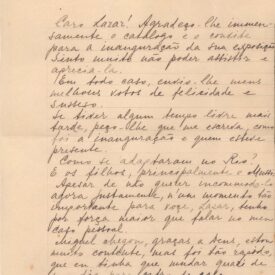 Caro Lazar! Agradeço-lhe immen-
samente o catálogo e o convite
para a inauguração da sua exposição
Sinto muito não poder assistir e
aprecia-la.
Em todo caso, envio-lhe meus
melhores votos de felicidade e
sucesso.
Se tiver algum tempo livre mais
tarde, peço-lhe que me escreva, como
foi a inauguração e quem esteve
presente.
Como se adaptaram no Rio?
E os filhos, principalmente o
Apesar de não querer incommodá-lo
agora justamente, n'um momento tão
importante para você, Lazar, tenho
por força maior que falar no meu
caso pessoal.
Miguel chegou, graças a Deus, estou
muito contente, mas foi tão rapido,
que eu tinha que mudar quasi de